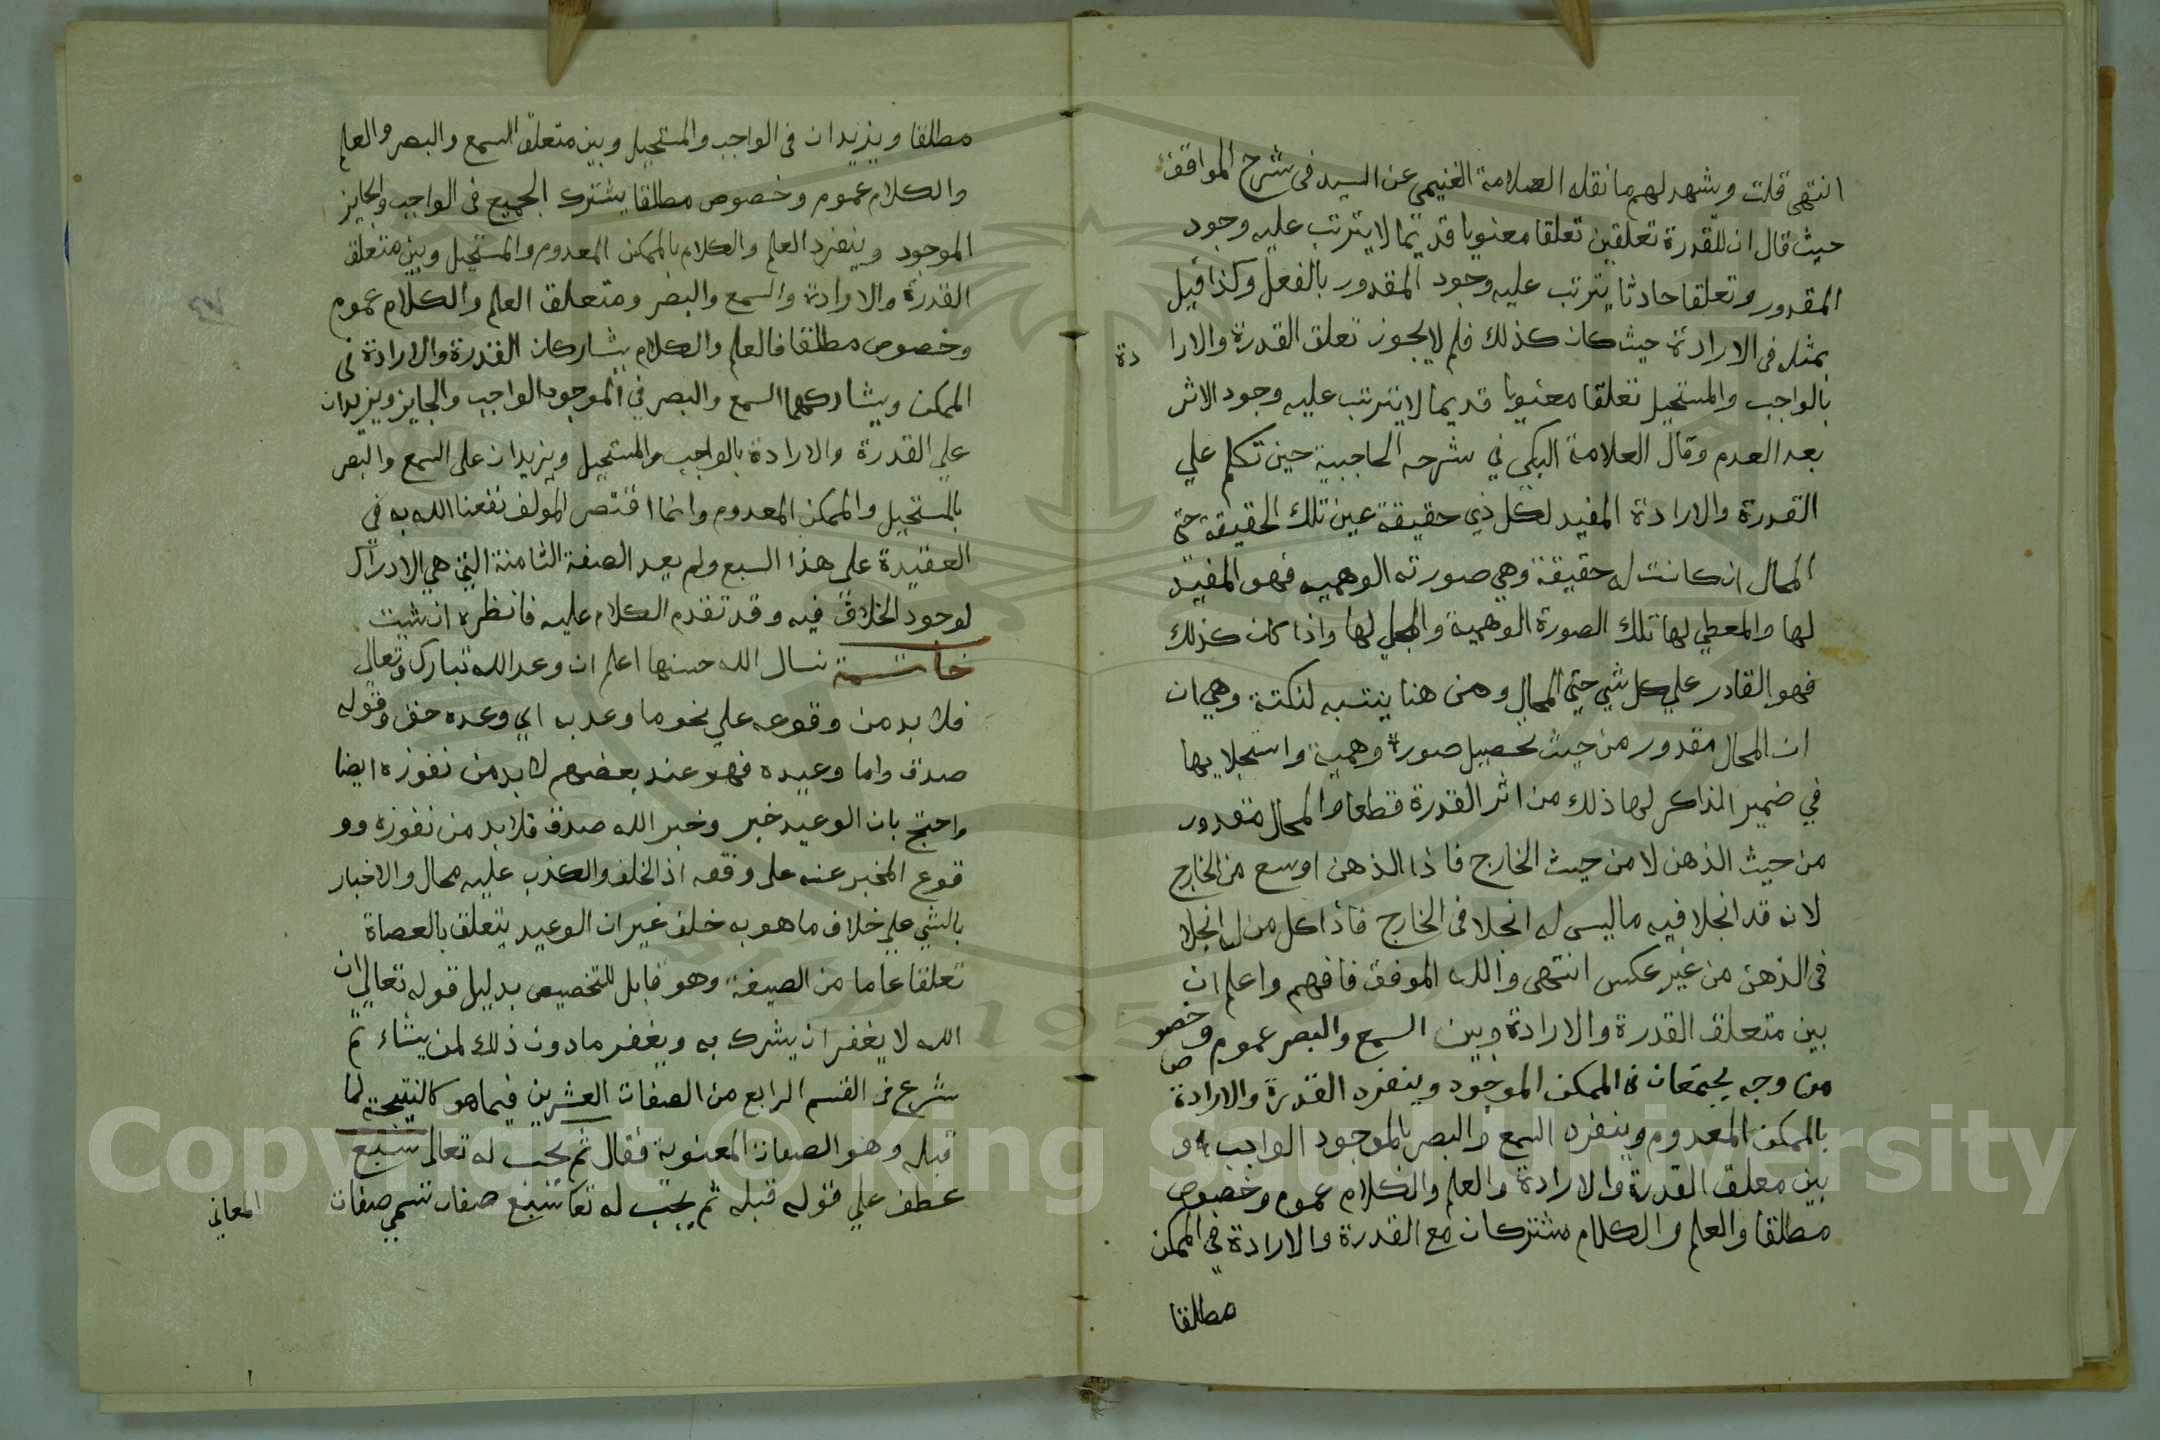 انتهى قلت ويشهد لهم ما نقله العلامة الغنيمي عن السيد في شرح المواقف
حيث قال ان للقدرة تعلقين تعلقا معنويا قديما لا يترتب عليه وجود
المقدور وتعلقا حادثا يترتب عليه وجود المقدور بالفعل وكذا قيل
بمثله في الارادة حيث كان كذلك فلم لا يجوز تعلق القدرة والارا دة
بالواجب والمستحيل تعلقا معنويا قديما لا يترتب عليه وجود الاثر
بعد العدم وقال العلامة البكي في شرحه الحاجبية حين تكلم علي
القدرة والارادة المفيد لكل ذي حقيقة عين تلك الحقيقة حتى
المحال ان كانت له حقيقة وهي صورته الوهميه فهو المفيد
لها والمعطي لها تلك الصورة الوهمية والمجلي لها واذا كان كذلك
فهو القادر علي كل شي حتي المحال ومن هنا ينتبه لنكتة وهي ان
ان المحال مقدور من حيث تحصيل صورة وهمية واستجلايها
في ضمير الذاكر لها ذلك من اثر القدرة قطعا والمحال مقدور
من حيث الذهن لا من حيث الخارج فاذا الذهن اوسع من الخارج
لانه قد انجلا فيه ما ليس له انجلا في الخارج فاذا كل من له انجلا
في الذهن من غير عكس انتهى والله الموفق فافهم واعلم ان
بين متعلق القدرة والارادة وبين السمع والبصر عموم وخصوص
من وجه يجتمعان في الممكن الموجود وينفرد القدرة والارادة
بالممكن المعدوم وينفرد السمع والبصر بالموجود الواجب و
بين معلق القدرة والارادة والعلم والكلام عموم وخصوص
مطلقا والعلم والكلام مشتركان مع القدرة والارادة في الممكن
مطلقا
مطلقا ويزيدان في الواجب والمستحيل وبين متعلق السمع والبصر والعلم
والكلام عموم وخصوص مطلقا يشترك الجميع في الواجب والجايز
الموجود وينفرد العلم والكلام بالممكن المعدوم والمستحيل وبين متعلق
القدرة والارادة والسمع والبصر ومتعلق العلم والكلام عموم
وخصوص مطلقا فالعلم والكلام يشاركان القدرة والارادة في
الممكن ويشاركهما السمع والبصر في الموجود الواجب والجايز ويزيدان
علي القدرة والارادة بالواجب والمستحيل ويزيدان على السمع والبصر
بالمستحيل والممكن المعدوم وانما اقتصر المولف نفعنا الله به في
العقيدة على هذا السبع ولم يعد الصفة الثامنة التي هي الادراك
لوجود الخلاف فيه وقد تقدم الكلام عليه فانظره ان شيت
خاتمة نسال الله حسنها اعلم ان وعد الله تبارك وتعالي
فلا بد من وقوعه علي نحو ما وعد به اي وعده حق وقوله
صدق واما وعيده فهو عند بعضهم لا بد من نفوذه ايضا
واحتج بان الوعيد خبر وخبر الله صدق فلا بد من نفوذه وو
قوع المخبر عنه على وفقه اذ الخلف والكذب عليه محال والاخبار
بالشي علي خلاف ما هو به خلف غير ان الوعيد يتعلق بالعصاة
تعلقا عاما من الصيغة وهو قابل للتخصيص بدليل قوله تعالي ان
الله لا يغفر ان يشرك به ويغفر ما دون ذلك لمن يشاء ثم
شرع في القسم الرابع من الصفات العشرين فيما هو كالنتيجة لما
قبله وهو الصفات المعنوية فقال ثم يجب له تعالى سبع
عطف علي قوله قبله ثم يجب له تعا سبع صفات تسمي صفات
المعاني
Copyright © King Saud University
195